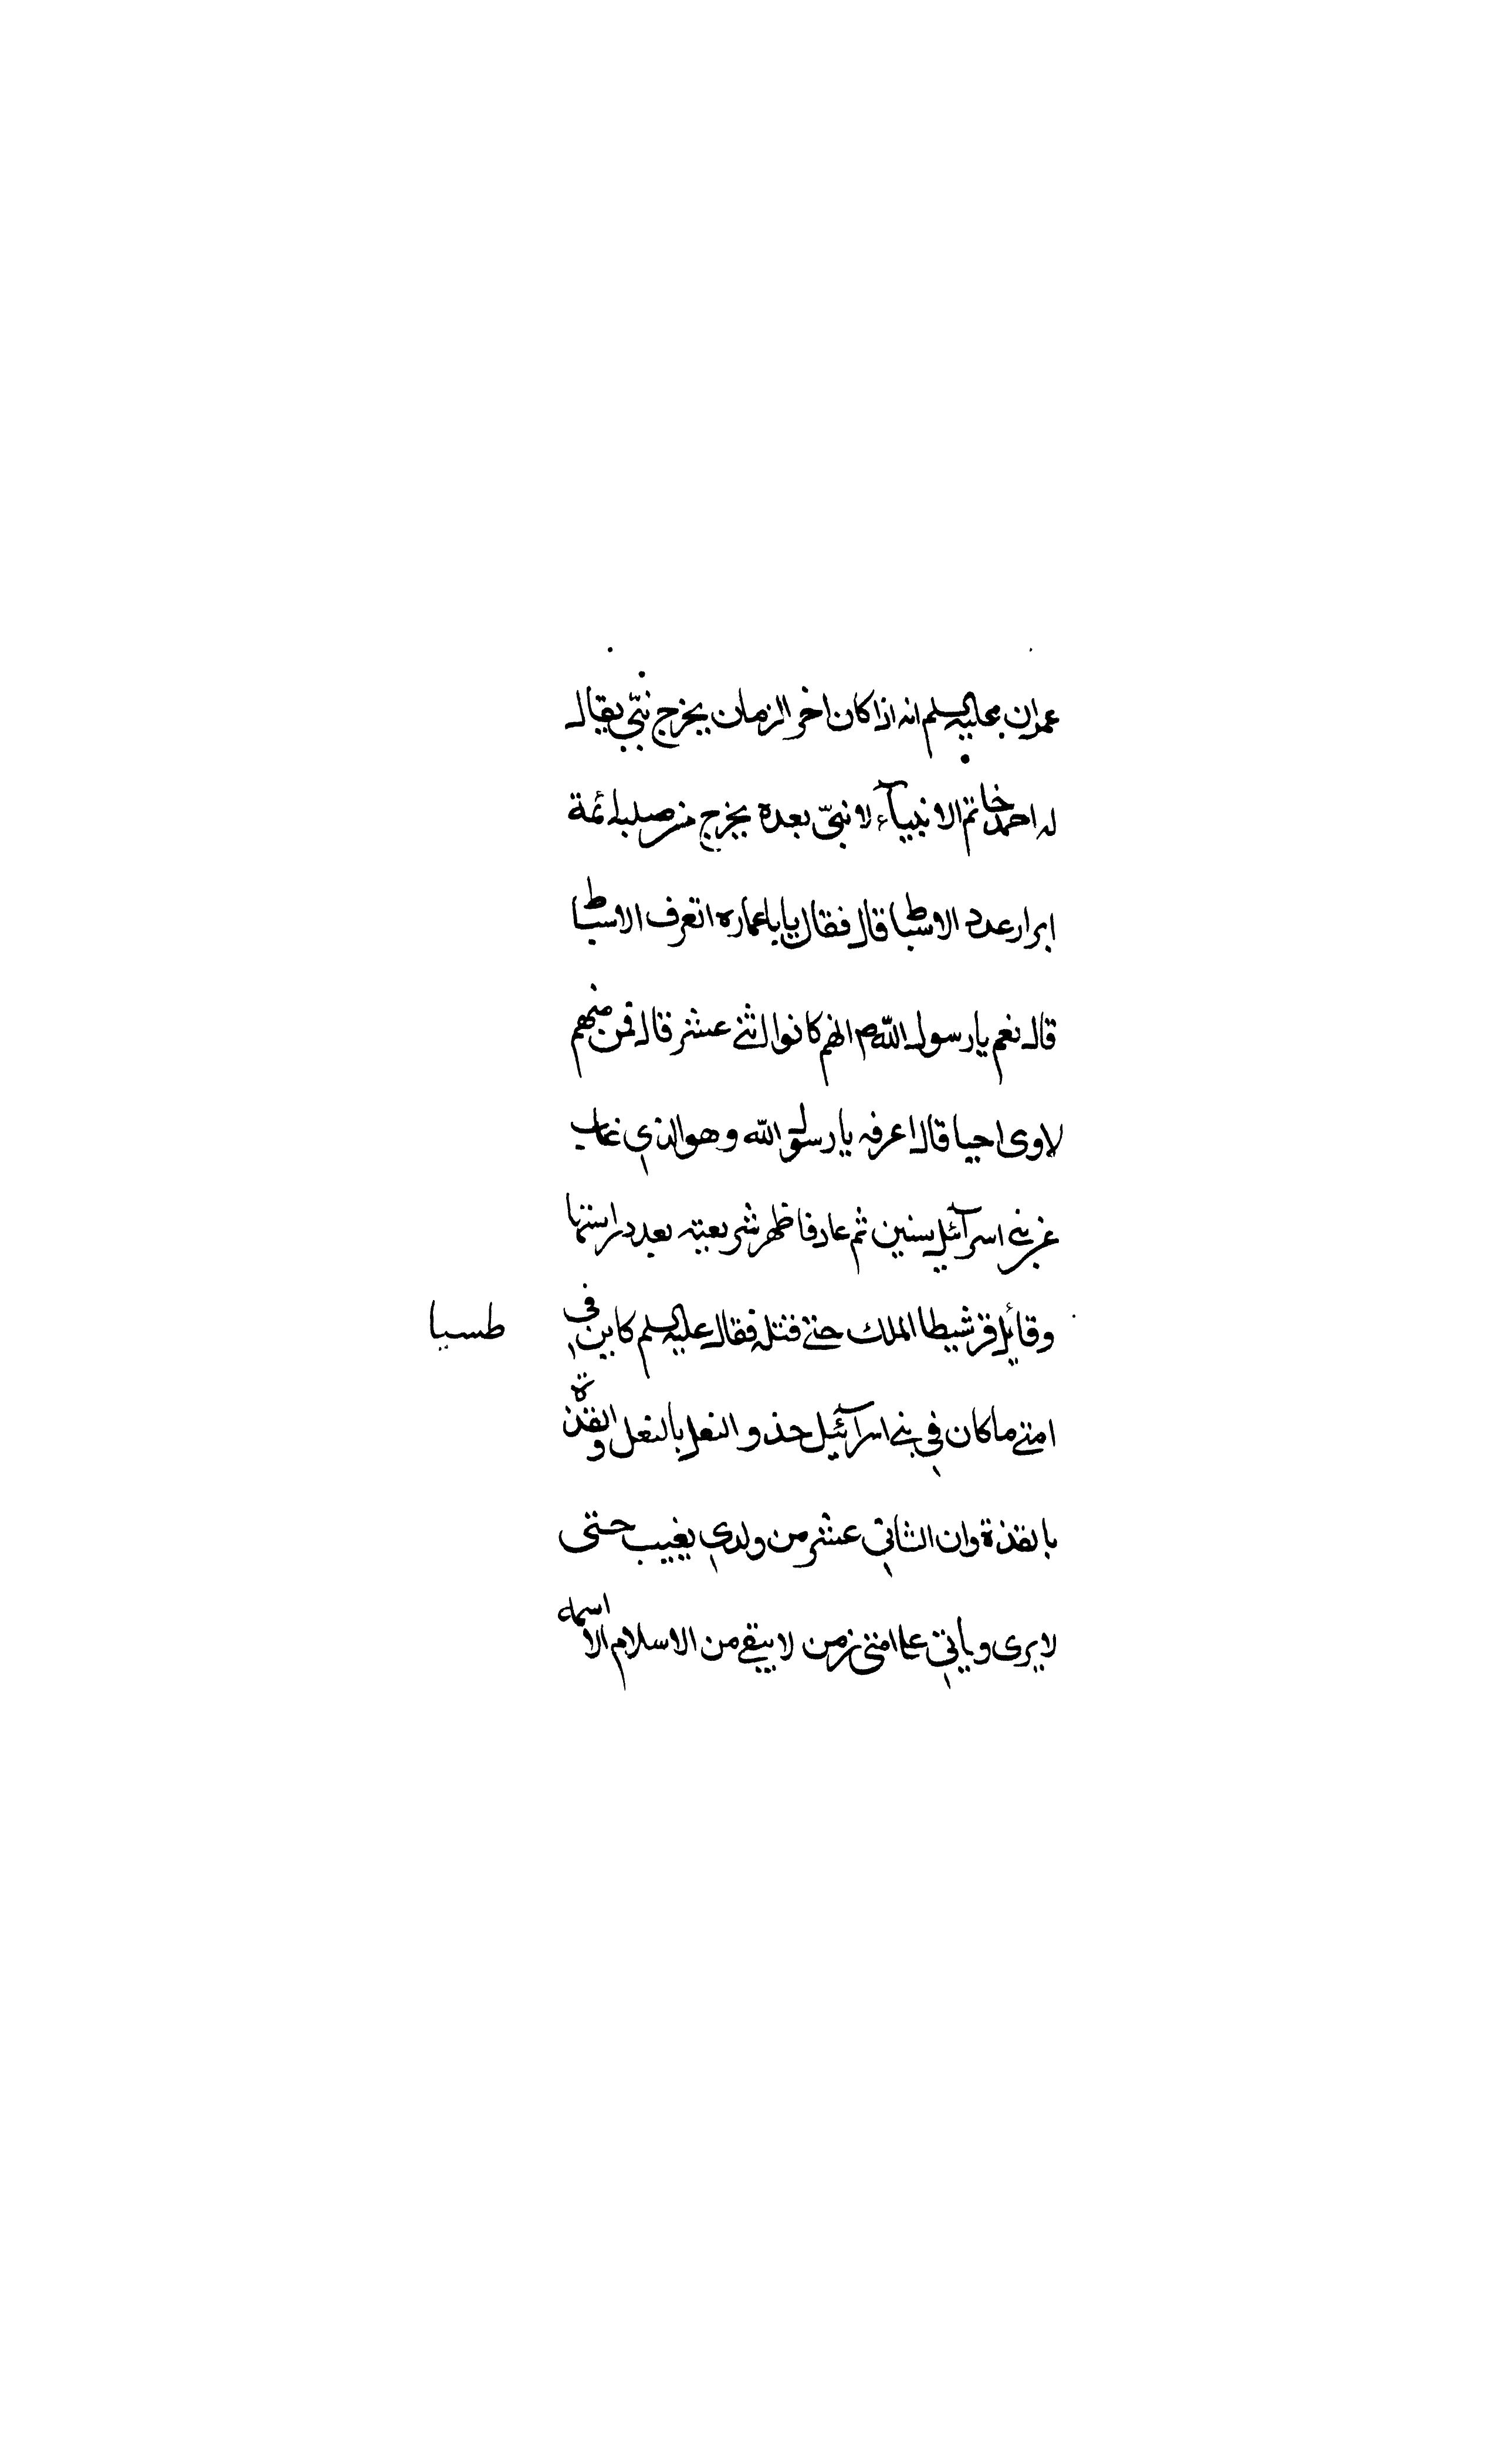 عمران عليه السلم انه اذا كان اخر الزمان يخرج نبيّ يقال
له احمد خاتم الانبيآء لا نبيّ بعده يخرج من صلبه ائمة
ابرار عدد الاسباط قال فقال يابا عماره اتعرف الاسباط
قال نعم يا رسول اللّه ص انهم كانوا اثنى عشر قال فمن منهم
لاوى احيا قال اعرفه يا رسول اللّه وهو الذي غاب
عن بنى اسرآئيل سنين ثم عاد فاظهر شريعته بعد دراستها
وقاتل قرشيطا الملك حتى قتله فقال عليه السلم كاين في
طسبا
امتى ما كان في بنى اسرآئيل حذو النعل بالنعل والقذة
بالقذة وان الثاني عشر من ولدي يغيب حتى
لا يرى وياتي على امتى زمن لا يبقى من الاسلام الا اسمه